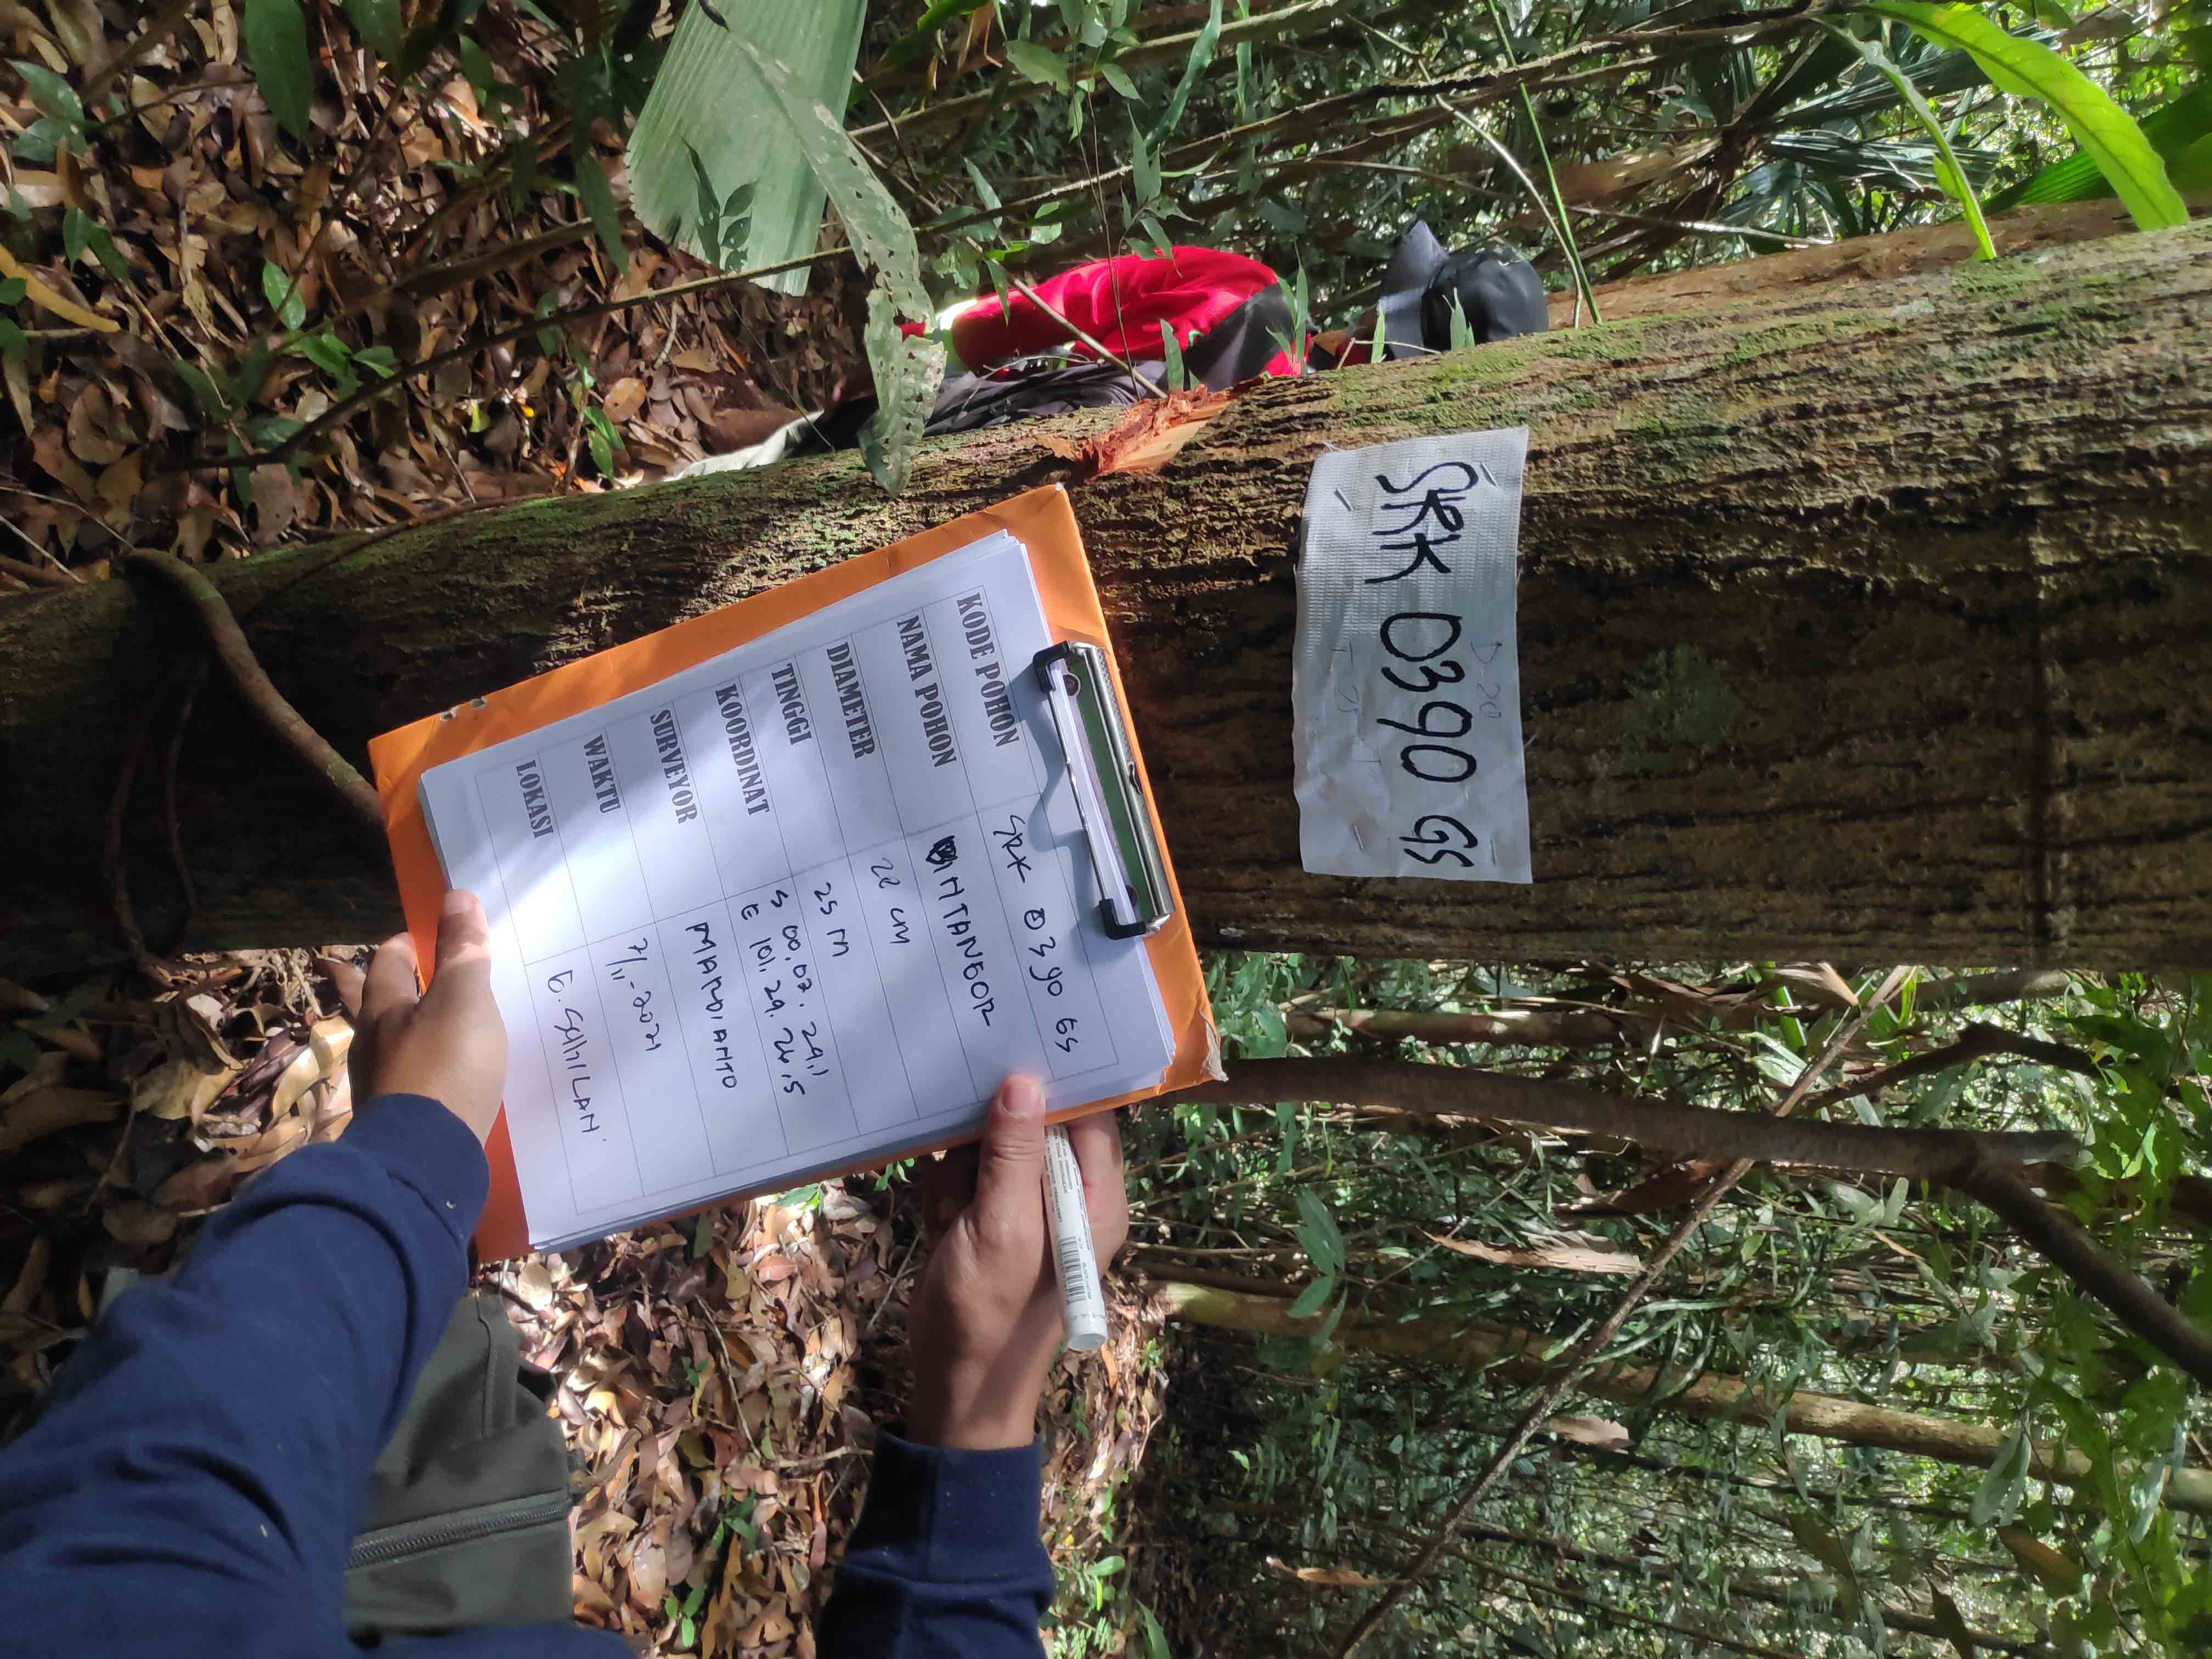 KODE POHON SRK 0390 GS
NAMA POHON BINTANGOR
DIAMETER 28 CM
TINGGI 25 M
KOORDINAT S 00.07.29,1
E 101.29.24,5
SURVEYOR MARDIANTO
WAKTU 7/11-2021
LOKASI G. SAHILAN
SRK 0390 GS